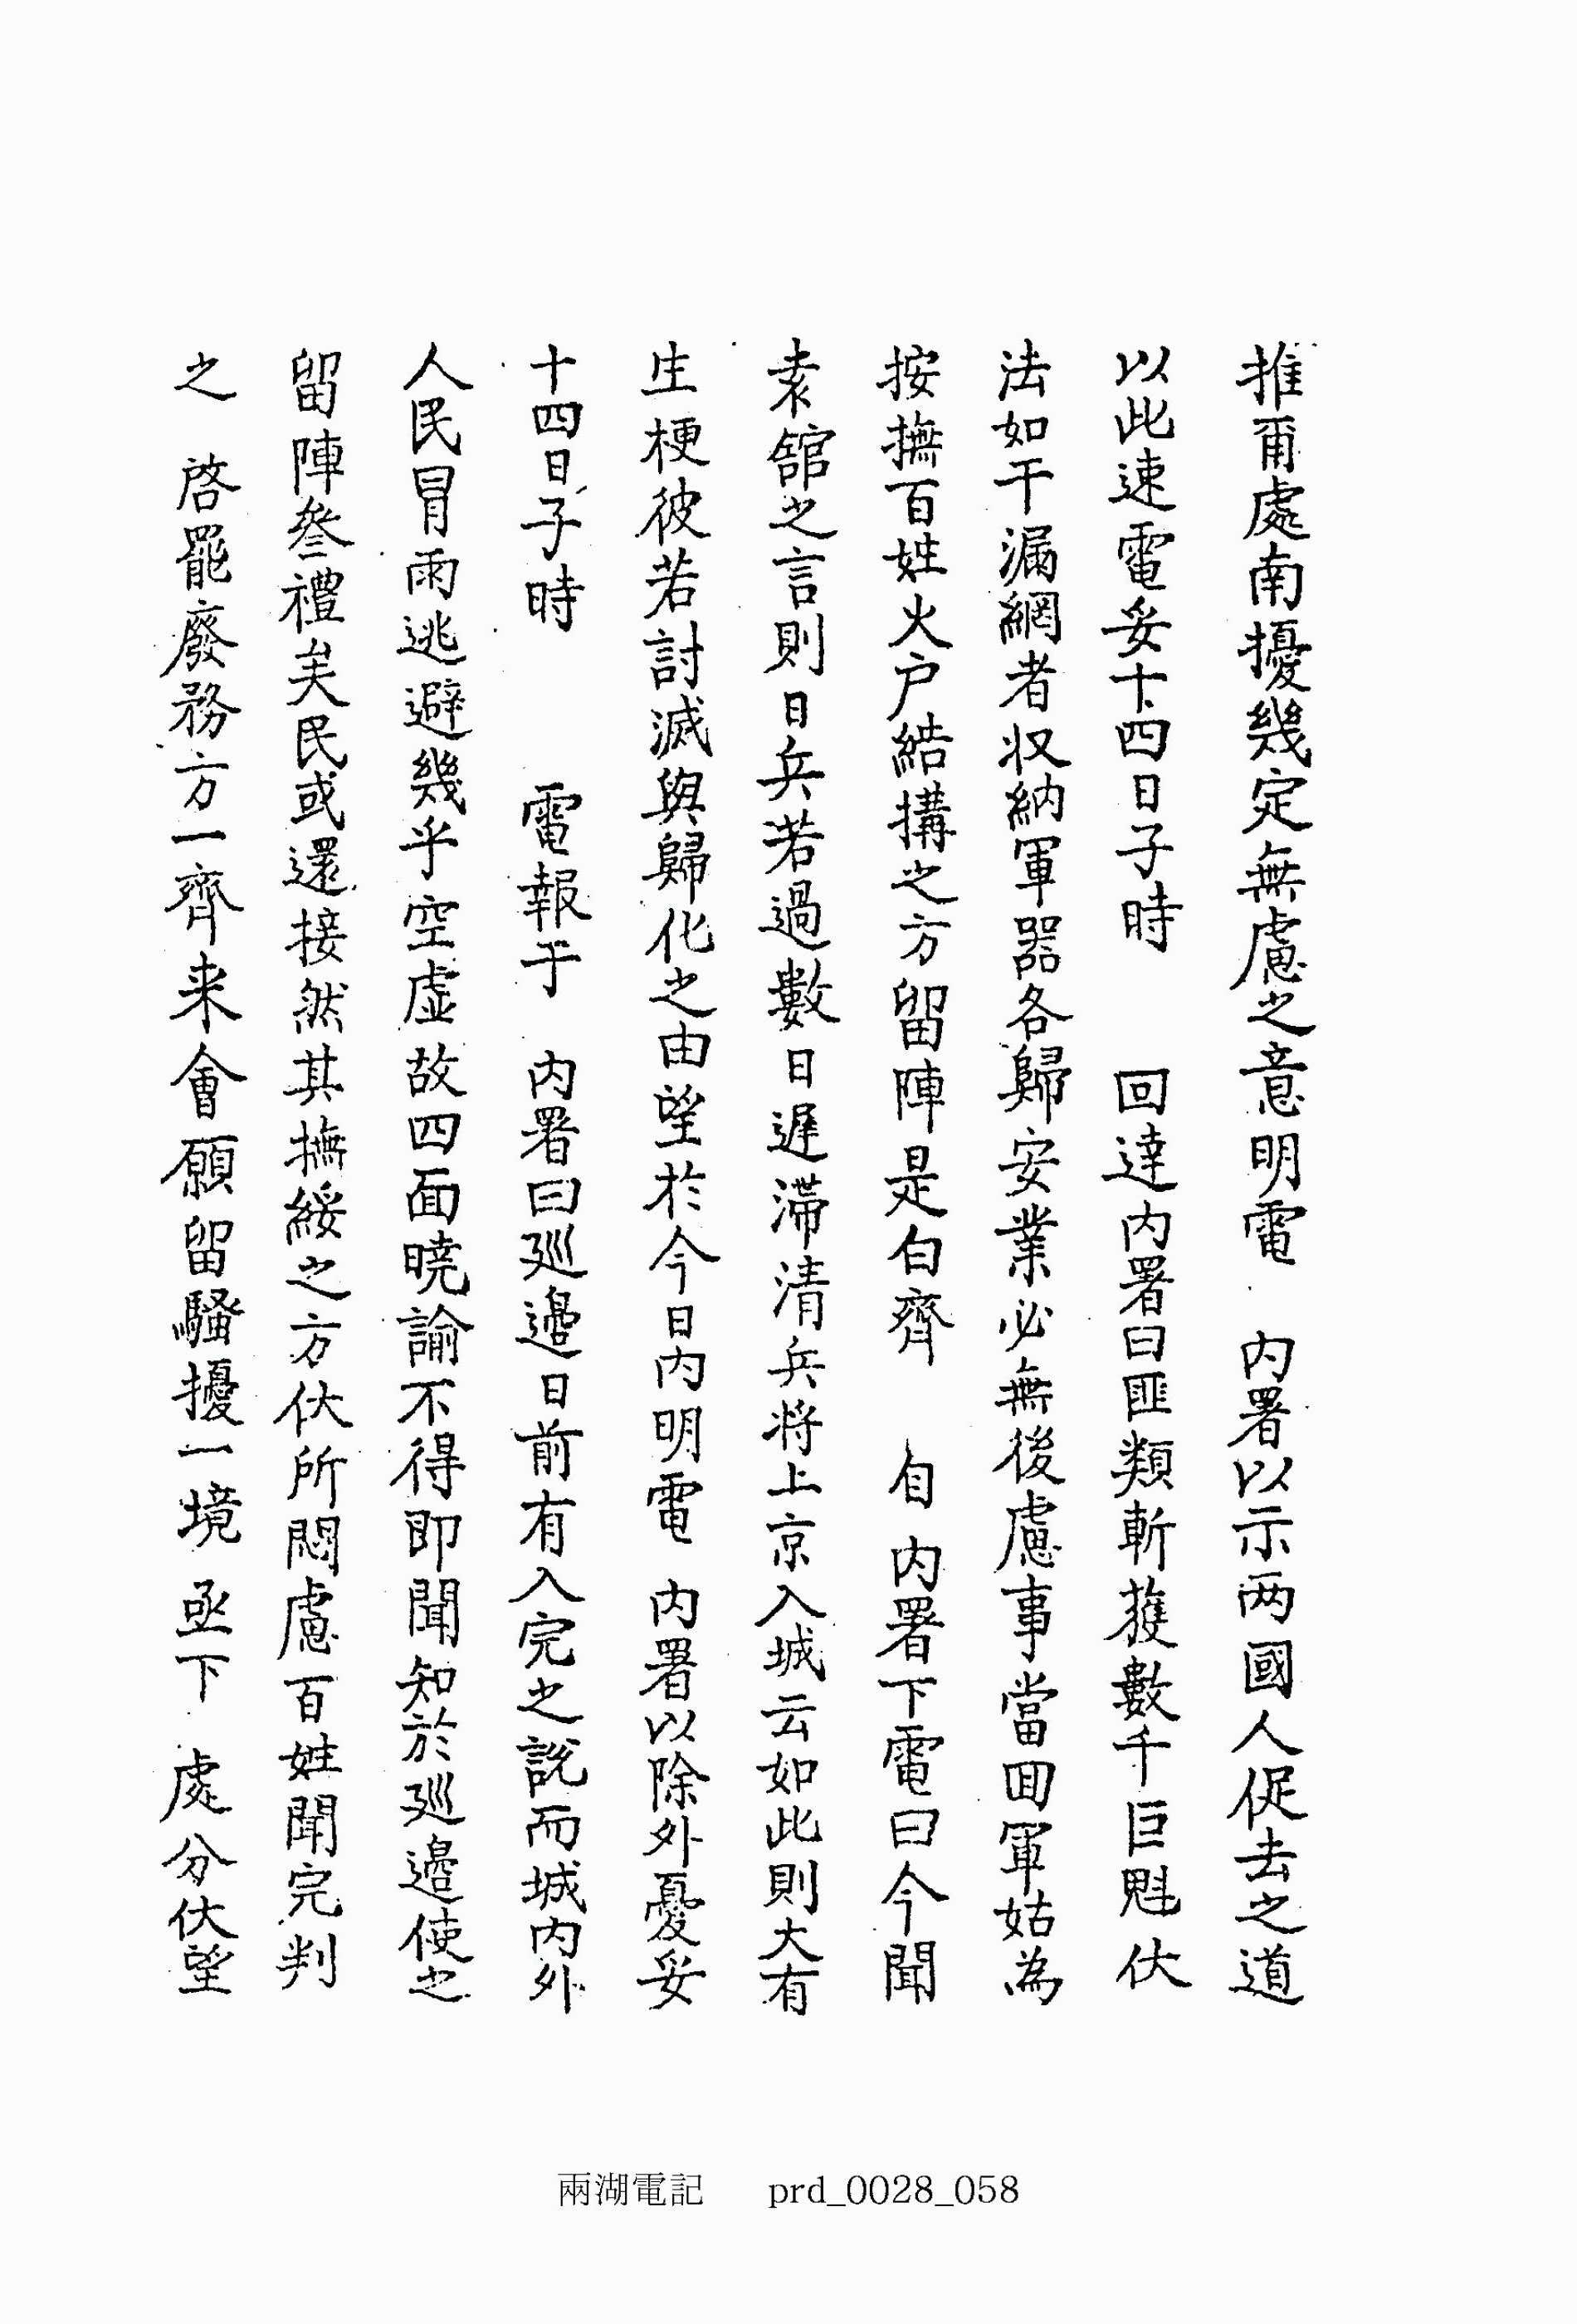 推爾處南擾幾定無慮之意明電 内署以示两國人促去之道
以此速電妥十四日子時 回達内署曰匪類斬獲數千巨魁伏
法如干漏網者収納軍器各歸安業必無後慮事當囬軍姑為
按撫百姓火户結搆之方留陣是白齊 自 内署下電曰今聞
袁舘之言則日兵若過數日遲滯清兵将上京入城云如此則大有
生梗彼若討滅與歸化之由望於今日内明電 内署以除外憂妥
十四日子時 電報于 内署曰廵邉日前有入完之說而城内外
人民冒雨逃避幾乎空虚故四面曉諭不得即聞知於廵邉使之
留陣叅禮矣民或還接然其撫綏之方伏所悶慮百姓聞完判
之 啓罷廢務方一齊来會願留騷擾一境 亟下 處分伏望
兩湖電記 prd_0028_058